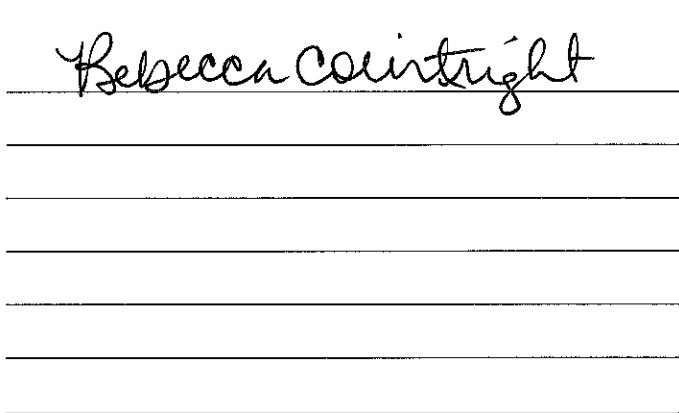 Rebecca Courtright